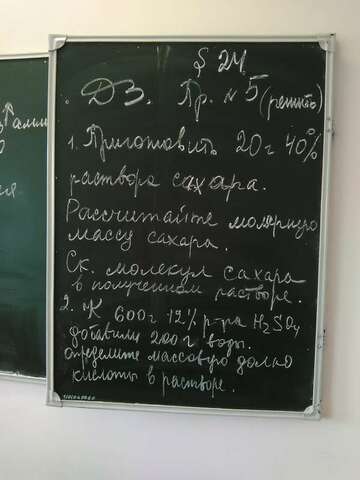 § 24
ДЗ. Пр. № 5 (решить)
1. Приготовить 20 г 40%
раствора сахара.
Рассчитайте молярную
массу сахара.
Ск. молекул сахара
в полученном растворе.
2. К 600 г 12% р-ра H₂SO₄
добавили 200 г воды.
определите массовую долю
кислоты в растворе.